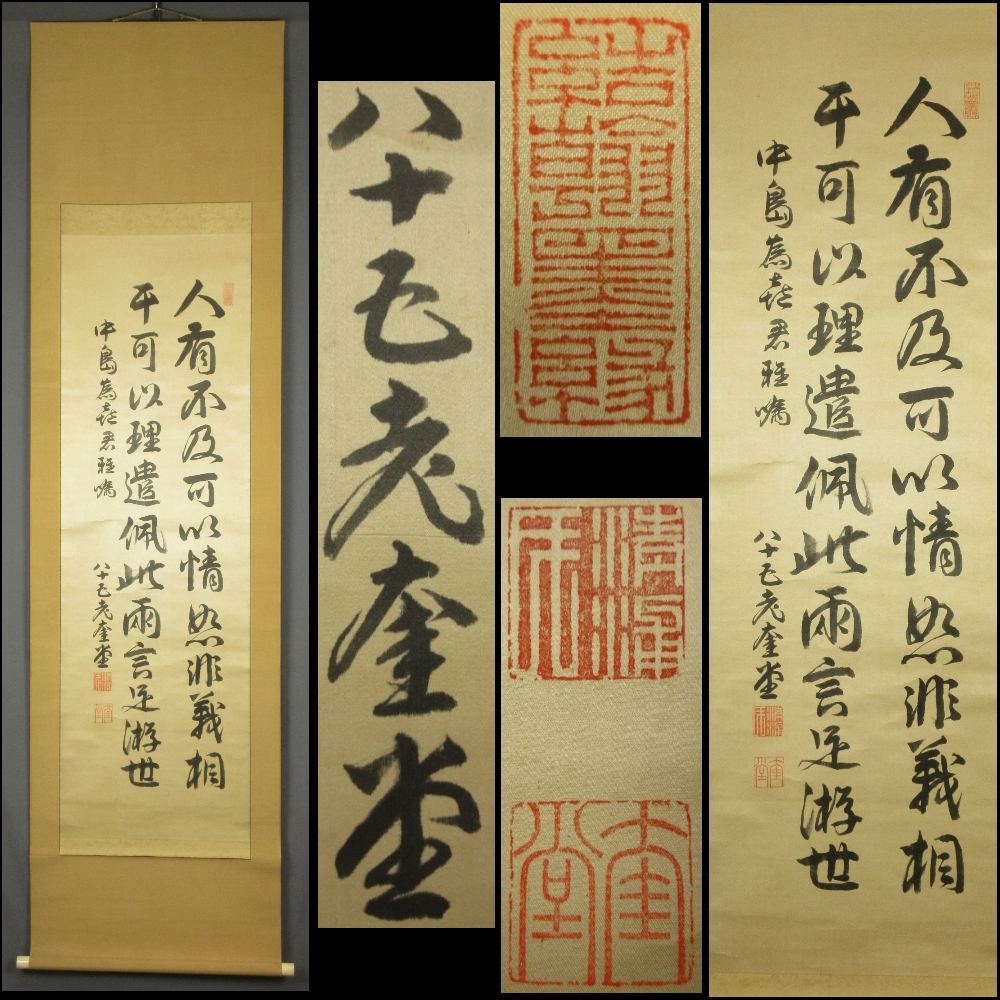 人有不及可以情恕非義相
干可以理遣佩此兩言足游世
中島為喜君雅嘱
八十五老奎堂
八十五老奎堂
奎堂
人有不及可以情恕非義相
干可以理遣佩此兩言足游世
中島為喜君雅嘱
八十五老奎堂